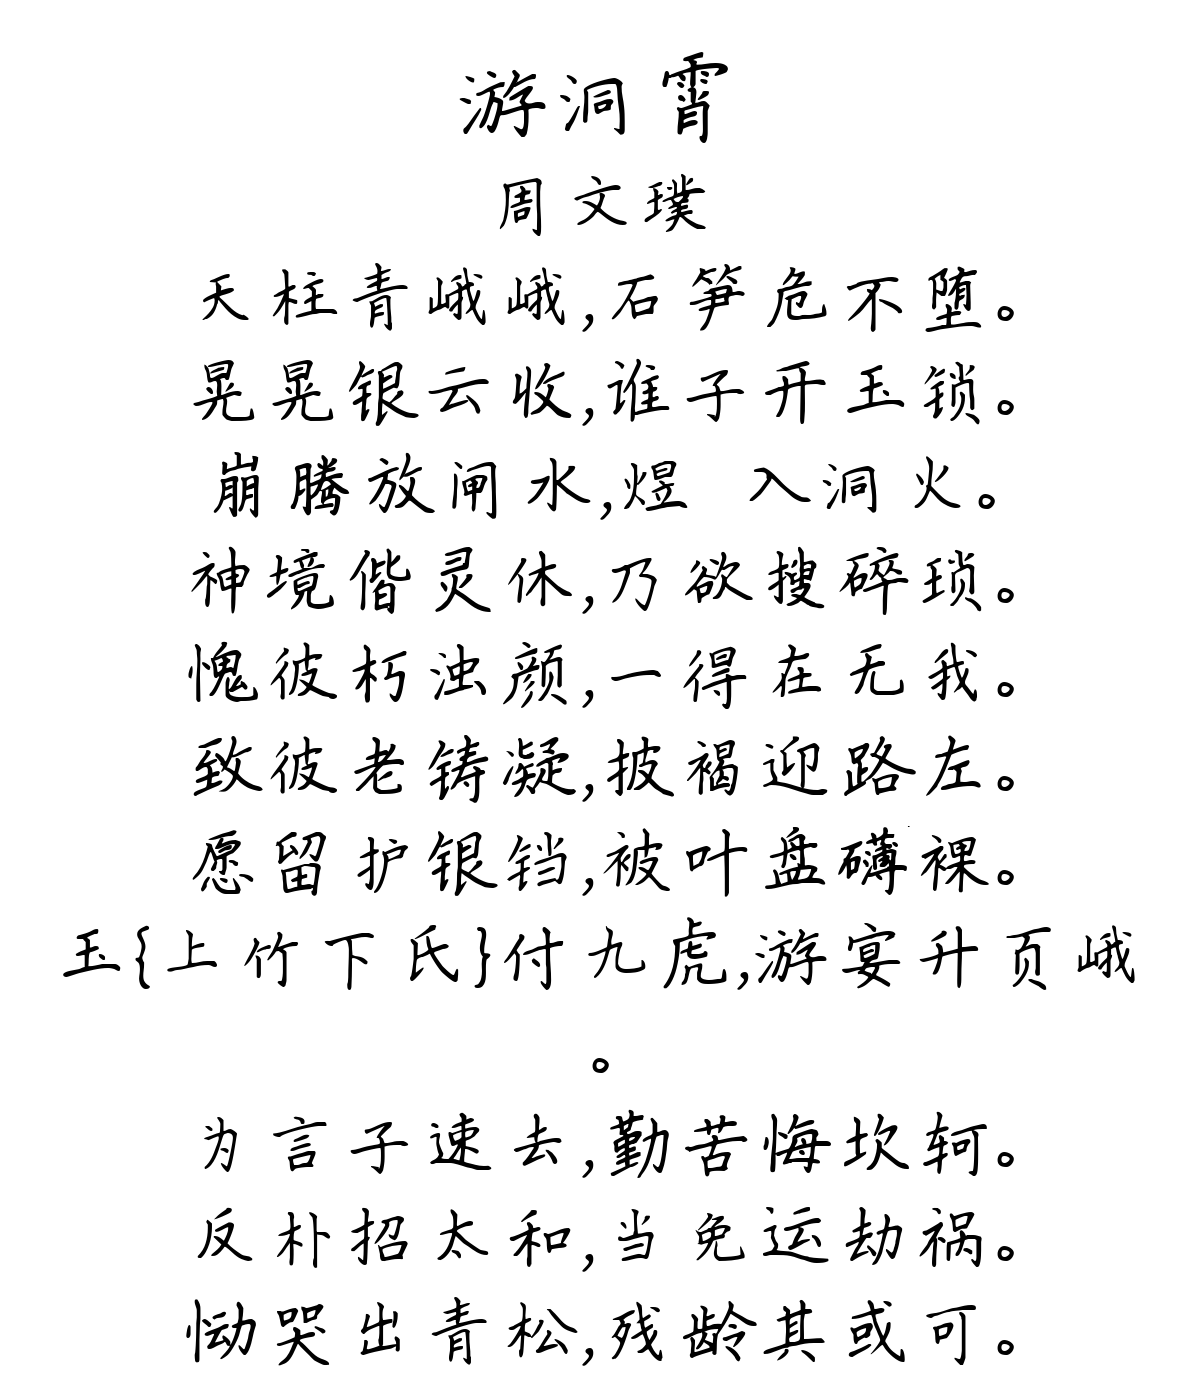 游洞霄
周文璞
天柱青峨峨,石笋危不堕。
晃晃银云收,谁子开玉锁。
崩腾放闸水,煜 入洞火。
神境偕灵休,乃欲搜碎琐。
愧彼朽浊颜,一得在无我。
致彼老铸凝,披褐迎路左。
愿留护银铛,被叶盘礴裸。
玉{上竹下氏}付九虎,游宴升页峨
。
为言子速去,勤苦悔坎轲。
反朴招太和,当免运劫祸。
恸哭出青松,残龄其或可。